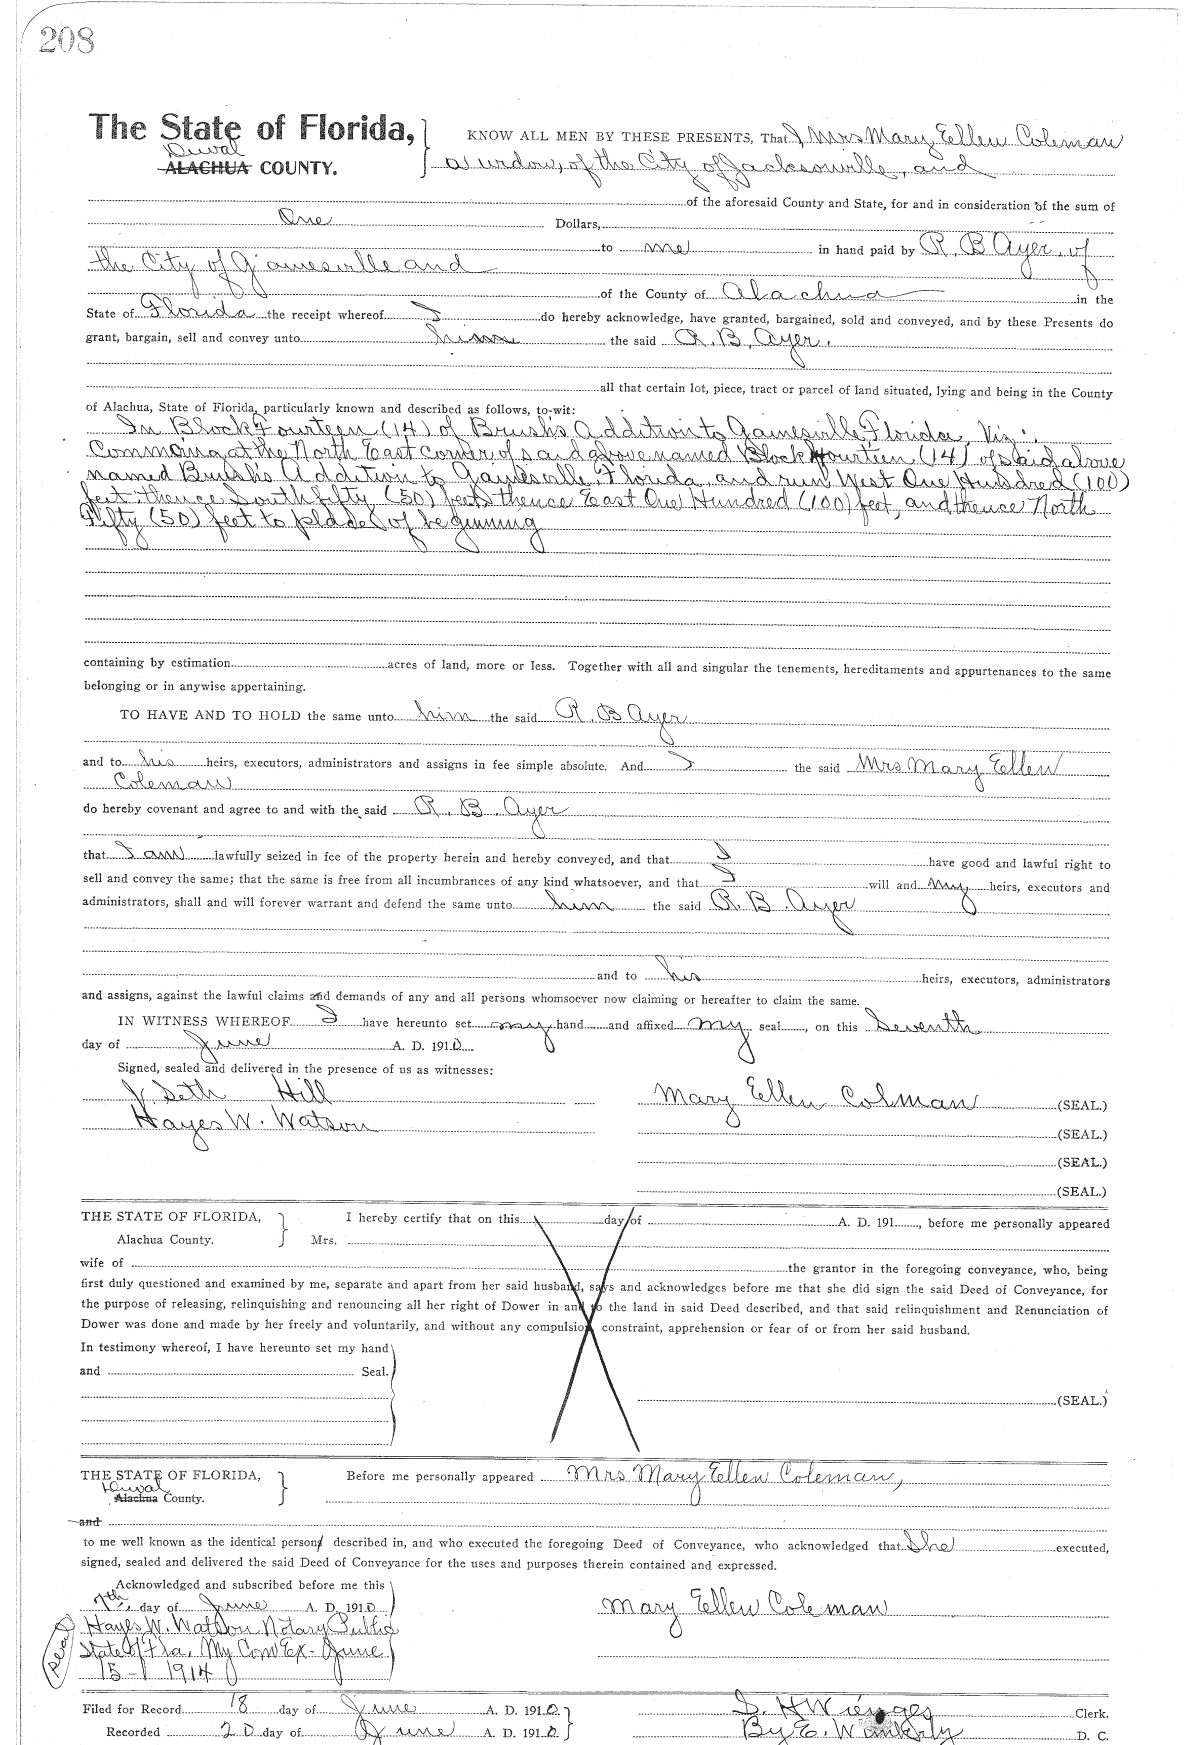 208
The State of Florida,
Duval
ALACHUA COUNTY.
KNOW ALL MEN BY THESE PRESENTS, That I Mrs Mary Ellen Coleman
a widow, of the City of Jacksonville, and
of the aforesaid County and State, for and in consideration of the sum of
One Dollars,
to me in hand paid by R. B Ayer, of
the City of Gainesville and
of the County of Alachua in the
State of Florida the receipt whereof I do hereby acknowledge, have granted, bargained, sold and conveyed, and by these Presents do
grant, bargain, sell and convey unto him the said R. B. Ayer.
all that certain lot, piece, tract or parcel of land situated, lying and being in the County
of Alachua, State of Florida, particularly known and described as follows, to-wit:
In Block Fourteen (14) of Brush's Addition to Gainesville, Florida, Viz:
Commcing at the North East Corner of said above named Block Fourteen (14) of said above
named Brush's Addition to Gainesville, Florida, and run West One Hundred (100)
feet thence South fifty (50) feet thence East One Hundred (100) feet, and thence North
Fifty (50) feet to place of beginning
containing by estimation acres of land, more or less. Together with all and singular the tenements, hereditaments and appurtenances to the same
belonging or in anywise appertaining.
TO HAVE AND TO HOLD the same unto him the said R. B Ayer
and to his heirs, executors, administrators and assigns in fee simple absolute. And I the said Mrs Mary Ellen
Coleman
do hereby covenant and agree to and with the said R. B. Ayer
that I am lawfully seized in fee of the property herein and hereby conveyed, and that I have good and lawful right to
sell and convey the same; that the same is free from all incumbrances of any kind whatsoever, and that I will and my heirs, executors and
administrators, shall and will forever warrant and defend the same unto him the said R. B. Ayer
and to his heirs, executors, administrators
and assigns, against the lawful claims and demands of any and all persons whomsoever now claiming or hereafter to claim the same.
IN WITNESS WHEREOF I have hereunto set my hand and affixed my seal, on this Seventh
day of June A. D. 1910
Signed, sealed and delivered in the presence of us as witnesses:
J. Seth Hill
Mary Ellen Colman (SEAL.)
Hayes W. Watson
(SEAL.)
(SEAL.)
(SEAL.)
THE STATE OF FLORIDA,
Alachua County.
I hereby certify that on this day of A. D. 191 , before me personally appeared
Mrs.
wife of the grantor in the foregoing conveyance, who, being
first duly questioned and examined by me, separate and apart from her said husband, says and acknowledges before me that she did sign the said Deed of Conveyance, for
the purpose of releasing, relinquishing and renouncing all her right of Dower in and to the land in said Deed described, and that said relinquishment and Renunciation of
Dower was done and made by her freely and voluntarily, and without any compulsion, constraint, apprehension or fear of or from her said husband.
In testimony whereof, I have hereunto set my hand
and Seal.
(SEAL.)
THE STATE OF FLORIDA,
Duval
Alachua County.
Before me personally appeared Mrs Mary Ellen Coleman,
and
to me well known as the identical person described in, and who executed the foregoing Deed of Conveyance, who acknowledged that She executed,
signed, sealed and delivered the said Deed of Conveyance for the uses and purposes therein contained and expressed.
Acknowledged and subscribed before me this
7th, day of June A. D. 1910
Mary Ellen Coleman
Hayes W. Watson Notary Public
State of Fla. My Com Ex- June
15- 1914
Seal
Filed for Record 18 day of June A. D. 1910
S. H Wienges Clerk.
Recorded 20 day of June A. D. 1910
By E. Wimberly D. C.